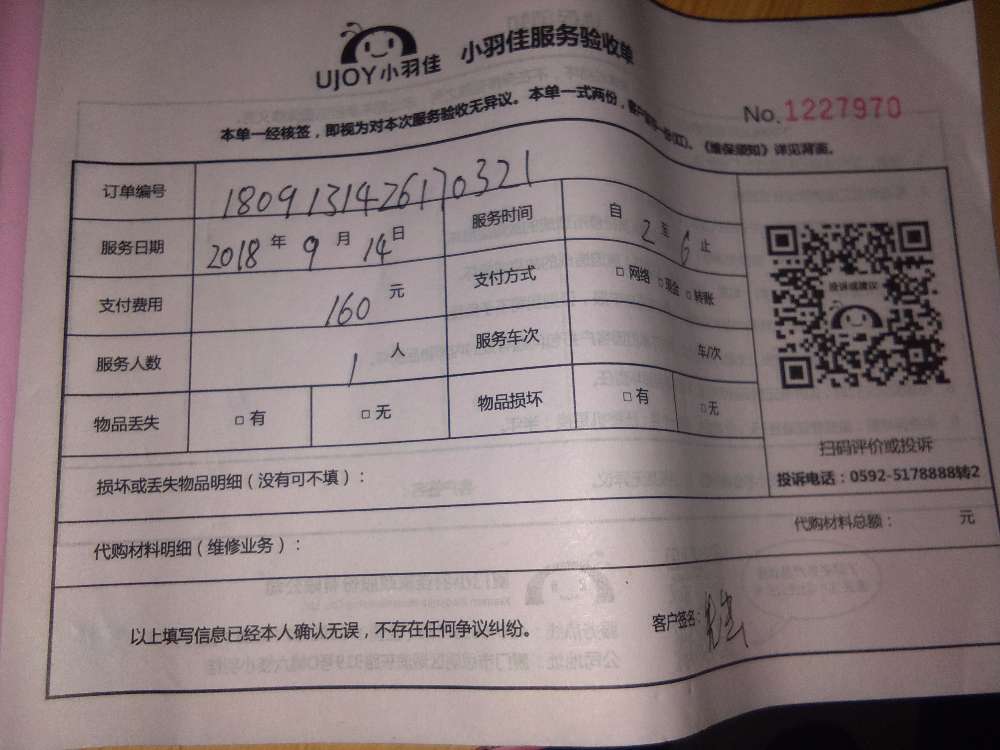 UJOY小羽佳 小羽佳服务验收单
No.1227970
本单一经核签，即视为对本次服务验收无异议。本单一式两份，客户留存一份(红)、《维保须知》详见背面。
订单编号 180913142617032​1
服务日期 2018 年 9 月 14 日 服务时间 自 2 至 6 止
支付费用 160 元 支付方式 □网络 □现金 □转账
服务人数 1 人 服务车次 车/次
物品丢失 □有 □无 物品损坏 □有 □无
投诉或建议
扫码评价或投诉
投诉电话：0592-5178888转2
损坏或丢失物品明细（没有可不填）：
代购材料明细（维修业务）： 代购材料总额： 元
以上填写信息已经本人确认无误，不存在任何争议纠纷。 客户签名: